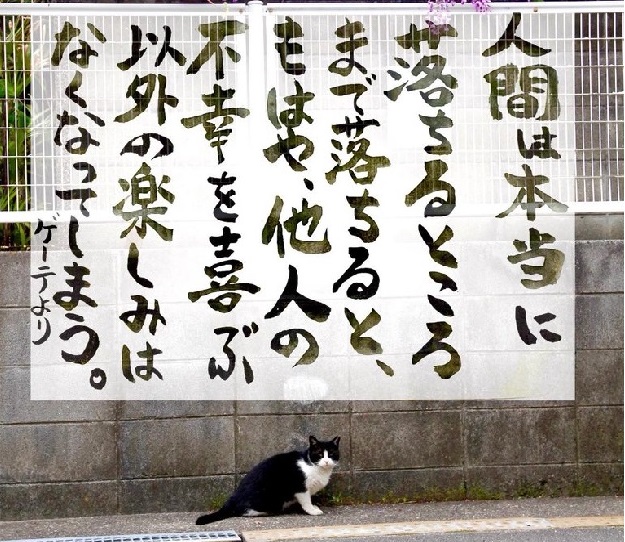 人間は本当に
落ちるところ
まで落ちると、
もはや、他人の
不幸を喜ぶ
以外の楽しみは
なくなってしまう。
ゲーテより